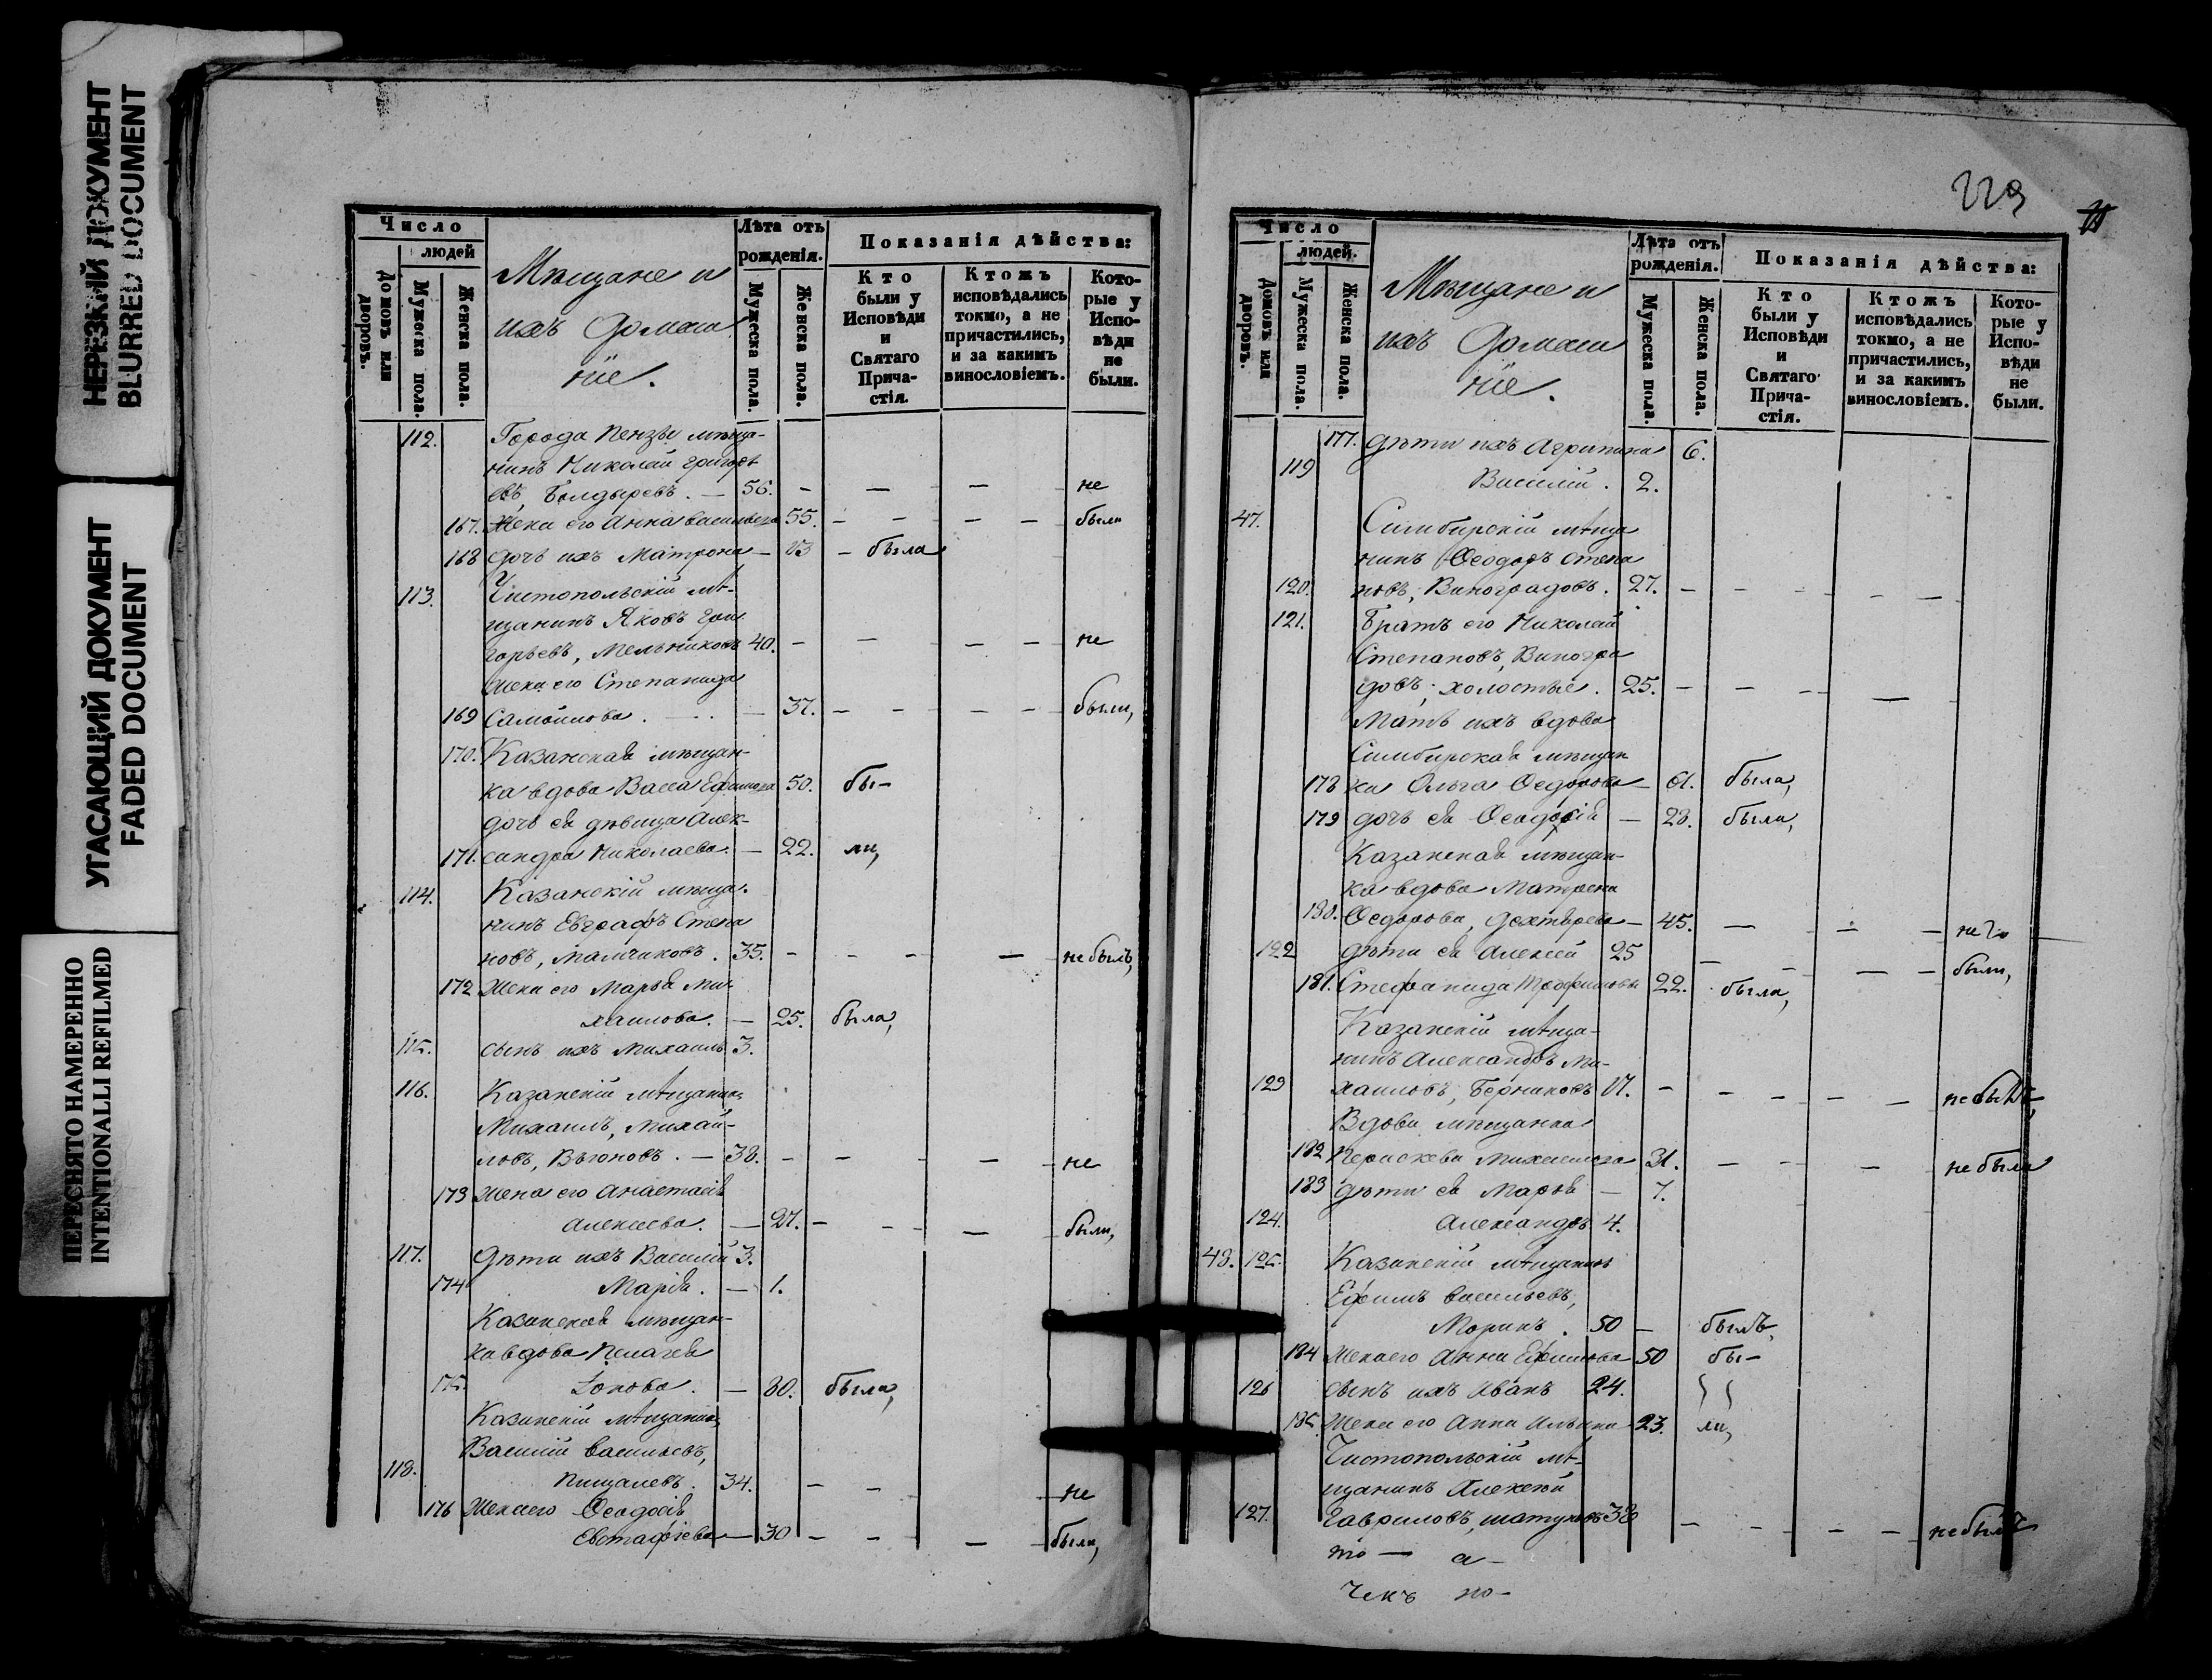 НЕРЕЗКИЙ ДОКУМЕНТ
BLURRED DOCUMENT
УГАСАЮЩИЙ ДОКУМЕНТ
FADED DOCUMENT
ПЕРЕСНЯТО НАМЕРЕННО
INTENTIONALLI REFILMED
Число
людей
Домовъ или дворовъ.
Мужеска пола.
Женска пола.
Мѣщане и
ихъ домаш
ніе.
Лѣта отъ
рожденія.
Мужеска пола.
Женска пола.
Показанія дѣйства:
Кто
были у
Исповѣди
и
Святаго
Прича-
стія.
Ктожъ
исповѣдались
токмо, а не
причастились,
и за какимъ
винословіемъ.
Кото-
рые у
Испо-
вѣди
не
были.
112. Города Пензы мѣща-
нинъ Николай Григорь
евъ, Болдыревъ. — 56. - — — - не
167. Жена его Анна Васильева 55. - - — — были
168 дочь ихъ Матрона — 13 - была
113. Чистопольскій мѣ-
щанинъ Яковъ Гри
горьевъ, Мельниковъ 40. - — — — не
Жена его Степанида
169 Самойлова. — 37. — — — — были,
170. Казанская мѣщан-
ка вдова Васса Ефимова 50. бы-
дочь ея девица Алек-
171. сандра Николаева. — 22. ли,
114. Казанскій мѣща-
нинъ Евграфъ Степа
новъ, Мальчиковъ. 35. - - - — не былъ,
172 Жена его Марья Ми-
хаилова. — 25. была,
115. сынъ ихъ Михаилъ 3.
116. Казанскій мѣщанинъ
Михаилъ, Михай-
ловъ, Вьюновъ. — 38. - — - — - не
173 Жена его Анастасія
Алексеева. — 27. - - - — - были,
117. Дѣти ихъ Василій 3.
174 Марія. — 1.
Казанская мѣщан-
ка вдова Пелагея
175. — 30. была,
Казанскій мѣщанинъ
Василій Васильевъ,
118. Пищалевъ. 34. - - - не
176 Жена его Ѳеодосія
Евстафіева — 30 - - — - были,
229
Число
людей.
Домовъ или дворовъ.
Мужеска пола.
Женска пола.
Мѣщане и
ихъ домаш
ніе.
Лѣта отъ
рожденія.
Мужеска пола.
Женска пола.
Показанія дѣйства:
Кто
были у
Исповѣди
и
Святаго
Прича-
стія.
Ктожъ
исповѣдались
токмо, а не
причастились,
и за какимъ
винословіемъ.
Кото-
рые у
Испо-
вѣди
не
были.
177. дѣти ихъ Агрипина 6.
119 Василій. 2.
47. Симбирскій мѣща
нинъ Ѳеодоръ Степа
120. новъ, Виноградовъ. 27. - - - - —
121. Братъ его Николай
Степановъ, Виногра
довъ; холостые. 25. - — - - —
Мать ихъ вдова
Симбирская мѣщан
178 ка Ольга Ѳедорова — 61. была,
179 дочь ея Ѳеодосія — 23. были,
Казанская мѣщан-
ка вдова Матрена
180. Ѳедорова, Дехтярева — 45. — — —
122 дѣти ея Алексей 25 — - — — были,
181. Стефанида Трофимова 22. была,
Казанскій мѣща-
нинъ Александръ Ми-
123 хаиловъ, 17. - - - - — не былъ,
Вдова мѣщанка
182 Параскева Михаилова 31. — - - — не была
183 дѣти ея Марья — 7.
124. Александръ 4.
48. 125. Казанскій мѣщанинъ
Ефимъ Васильевъ,
Моринъ. 50 — былъ,
184 Жена его Анна Ефимова 50 бы-
126 сынъ ихъ Иванъ 24.
185. Жена его Анна Ильина 23. ли,
Чистопольскій мѣ-
щанинъ Алексѣй
127. Гавриловъ, Шатуновъ 38 — - - — — не былъ
то — а-
чекъ по-